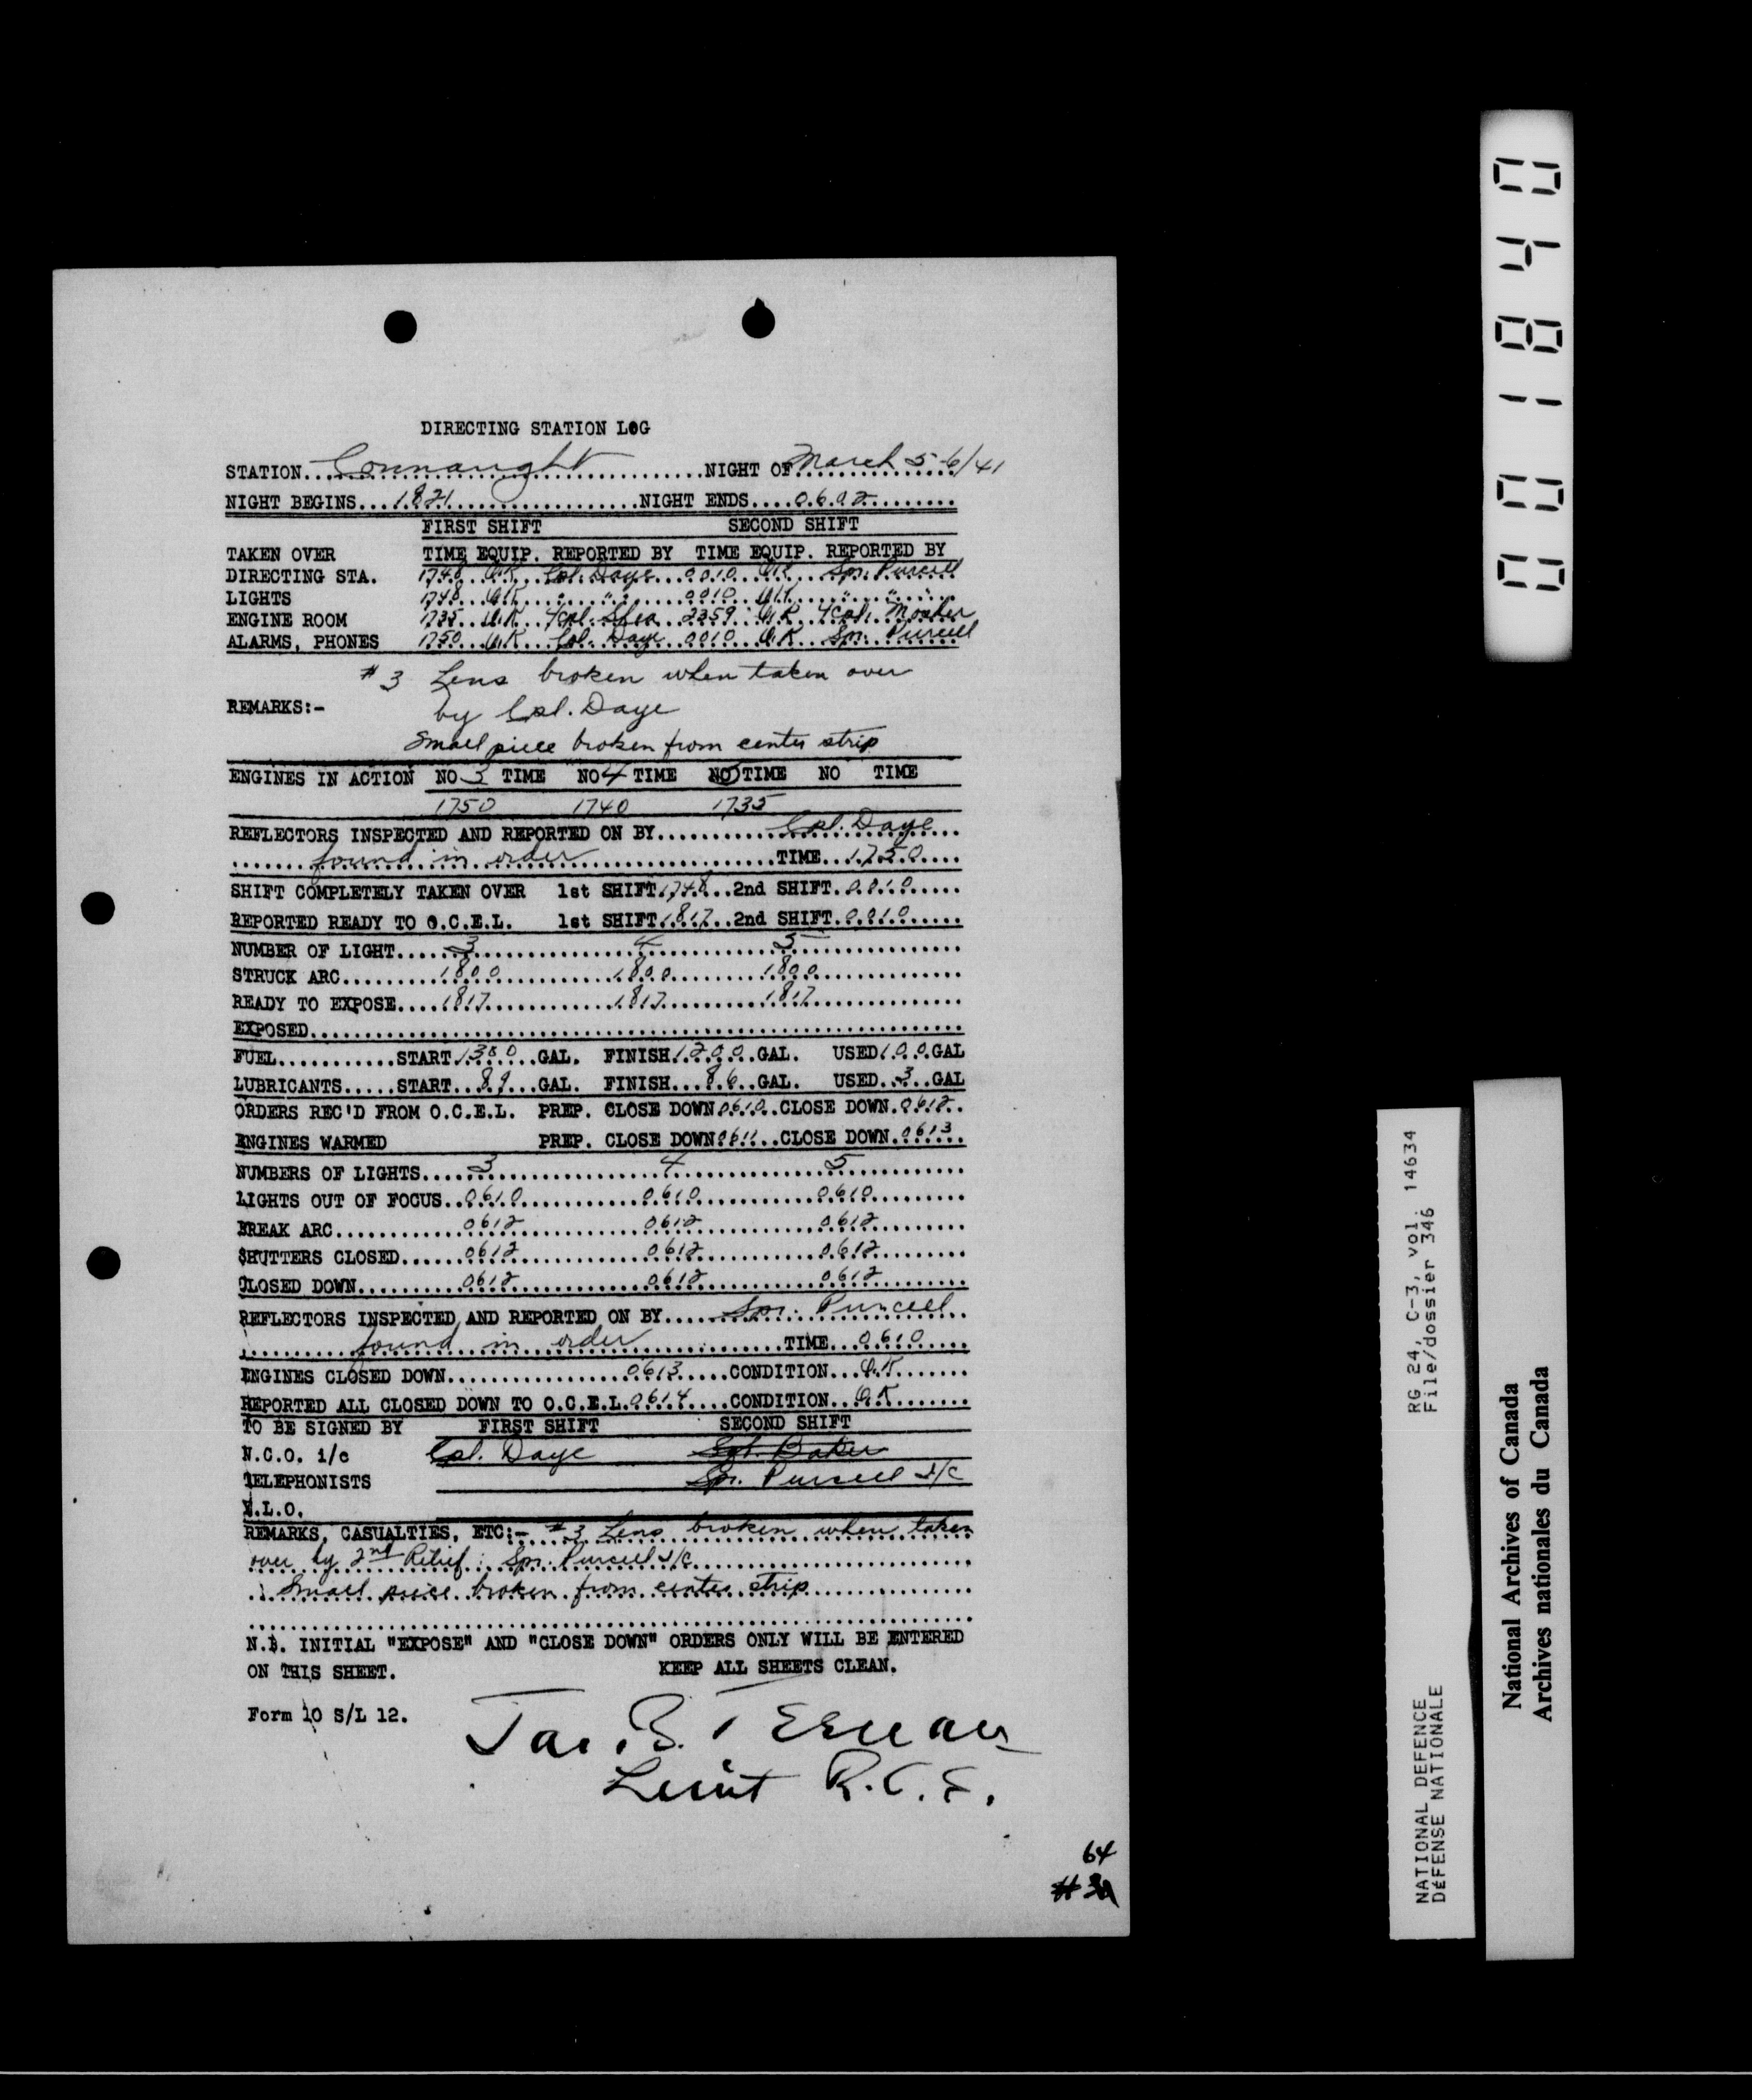 DIRECTING STATION LOG
STATION...Connaught...NIGHT OF March 5-6/41
NIGHT BEGINS...1821...NIGHT ENDS...0602...
FIRST SHIFT SECOND SHIFT
TAKEN OVER TIME EQUIP. REPORTED BY TIME EQUIP. REPORTED BY
DIRECTING STA. 1748 O.K. Cpl. Daye 0010 O.K. Spr. Purcell
LIGHTS 1748 O.K. " " 0010 O.K. " "
ENGINE ROOM 1735 O.K. L/Cpl. Shea 2359 O.K. L/Cpl. Mosher
ALARMS, PHONES 1750 O.K. Cpl. Daye 0010 O.K. Spr. Purcell
#3 Lens broken when taken over
REMARKS:- by Cpl. Daye
Small piece broken from center strip
ENGINES IN ACTION NO 3 TIME NO 4 TIME NO 5 TIME NO TIME
1750 1740 1735
REFLECTORS INSPECTED AND REPORTED ON BY...Cpl. Daye...
...found in order...TIME...1750...
SHIFT COMPLETELY TAKEN OVER 1st SHIFT.1748...2nd SHIFT.0010...
REPORTED READY TO O.C.E.L. 1st SHIFT.1817..2nd SHIFT.0010...
NUMBER OF LIGHT...3...4...5...
STRUCK ARC...1800...1800...1800...
READY TO EXPOSE...1817...1817...1817...
EXPOSED...
FUEL...START.1300...GAL. FINISH.1200..GAL. USED.100.GAL
LUBRICANTS...START...89...GAL. FINISH...86..GAL. USED..3..GAL
ORDERS REC'D FROM O.C.E.L. PREP. CLOSE DOWN 0610..CLOSE DOWN.0612..
ENGINES WARMED PREP. CLOSE DOWN 0611...CLOSE DOWN.0613..
NUMBERS OF LIGHTS...3...4...5...
LIGHTS OUT OF FOCUS..0610...0610...0610...
BREAK ARC...0612...0612...0612...
SHUTTERS CLOSED...0612...0612...0612...
CLOSED DOWN...0612...0612...0612...
REFLECTORS INSPECTED AND REPORTED ON BY...Spr. Purcell..
...found in order...TIME...0610...
ENGINES CLOSED DOWN...0613...CONDITION...O.K...
REPORTED ALL CLOSED DOWN TO O.C.E.L.0614...CONDITION...O.K...
TO BE SIGNED BY FIRST SHIFT SECOND SHIFT
N.C.O. i/c Cpl. Daye Sgt. Baker
TELEPHONISTS Spr. Purcell I/C
E.L.O.
REMARKS, CASUALTIES, ETC:- #3 Lens broken when taken
over by 2nd Relief: Spr. Purcell I/C
Small piece broken from center strip
N.B. INITIAL "EXPOSE" AND "CLOSE DOWN" ORDERS ONLY WILL BE ENTERED
ON THIS SHEET. KEEP ALL SHEETS CLEAN.
Form 10 S/L 12.
Lieut R.C.E.
64
001840
RG 24, C-3, vol. 14634
File/dossier 346
NATIONAL DEFENCE
DÉFENSE NATIONALE
National Archives of Canada
Archives nationales du Canada